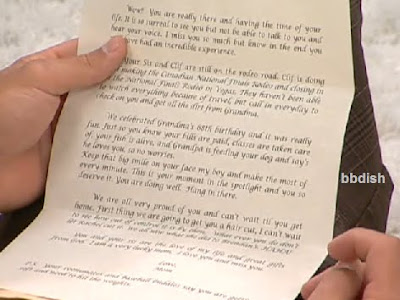 Wow! You are really there and having the time of your
life. It is so surreal to see you but not be able to talk to you and
hear your voice. I miss you so much but know in the end you
have had an incredible experience.
Your Sis and Clif are still on the rodeo road. Clif is doing
making the Canadian National Finals Rodeo and closing in
National Finals Rodeo in Vegas. They haven't been able
to watch everything because of travel, but call in everyday to
check on you and get all the dirt from Grandma.
We celebrated Grandma's 80th birthday and it was really
fun. Just so you know your bills are paid, classes are taken care
of, your fish is alive, and Grandpa is feeding your dog and say's
he loves you, so no worries.
Keep that big smile on your face my boy and make the most of
every minute. This is your moment in the spotlight and you so
deserve it. You are doing well. Hang in there.
We are all very proud of you and can't wait til you get
home. First thing we are going to get you a hair cut, I can't wait
to see
You and your sis are the love of my life and great gifts
from God. I am a very lucky mom. I love you and miss you.
Love,
Mom
P.S. Your roommates and baseball buddies say you are
and need to hit the weights.
bbdish